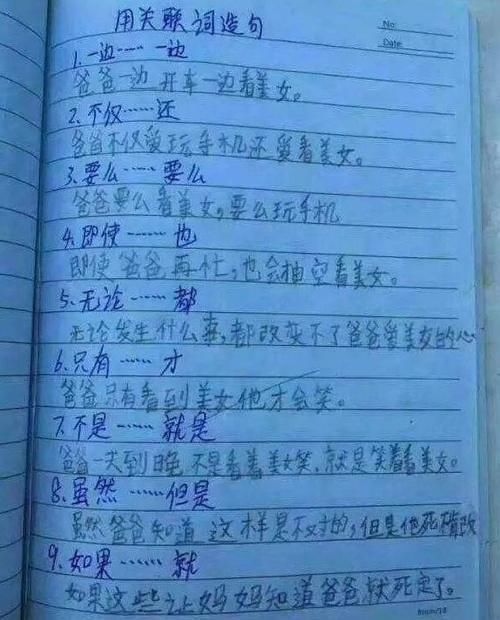 用关联词造句
No
Date
1.一边……一边
爸爸一边开车一边看美女。
2.不仅……还
爸爸不仅爱玩手机还爱看美女。
3.要么……要么
爸爸要么看美女,要么玩手机
4.即使……也
即使爸爸再忙,也会抽空看美女。
5.无论……都
无论发生什么事,都改变不了爸爸爱美女的心
6.只有……才
爸爸只有看到美女他才会笑。
7.不是……就是
爸爸一天到晚不是看着美女笑,就是笑着看美女。
8.虽然……但是
虽然爸爸知道这样是不对的,但是他死犟改
9.如果……就
如果这些让妈妈知道爸爸就死定了。